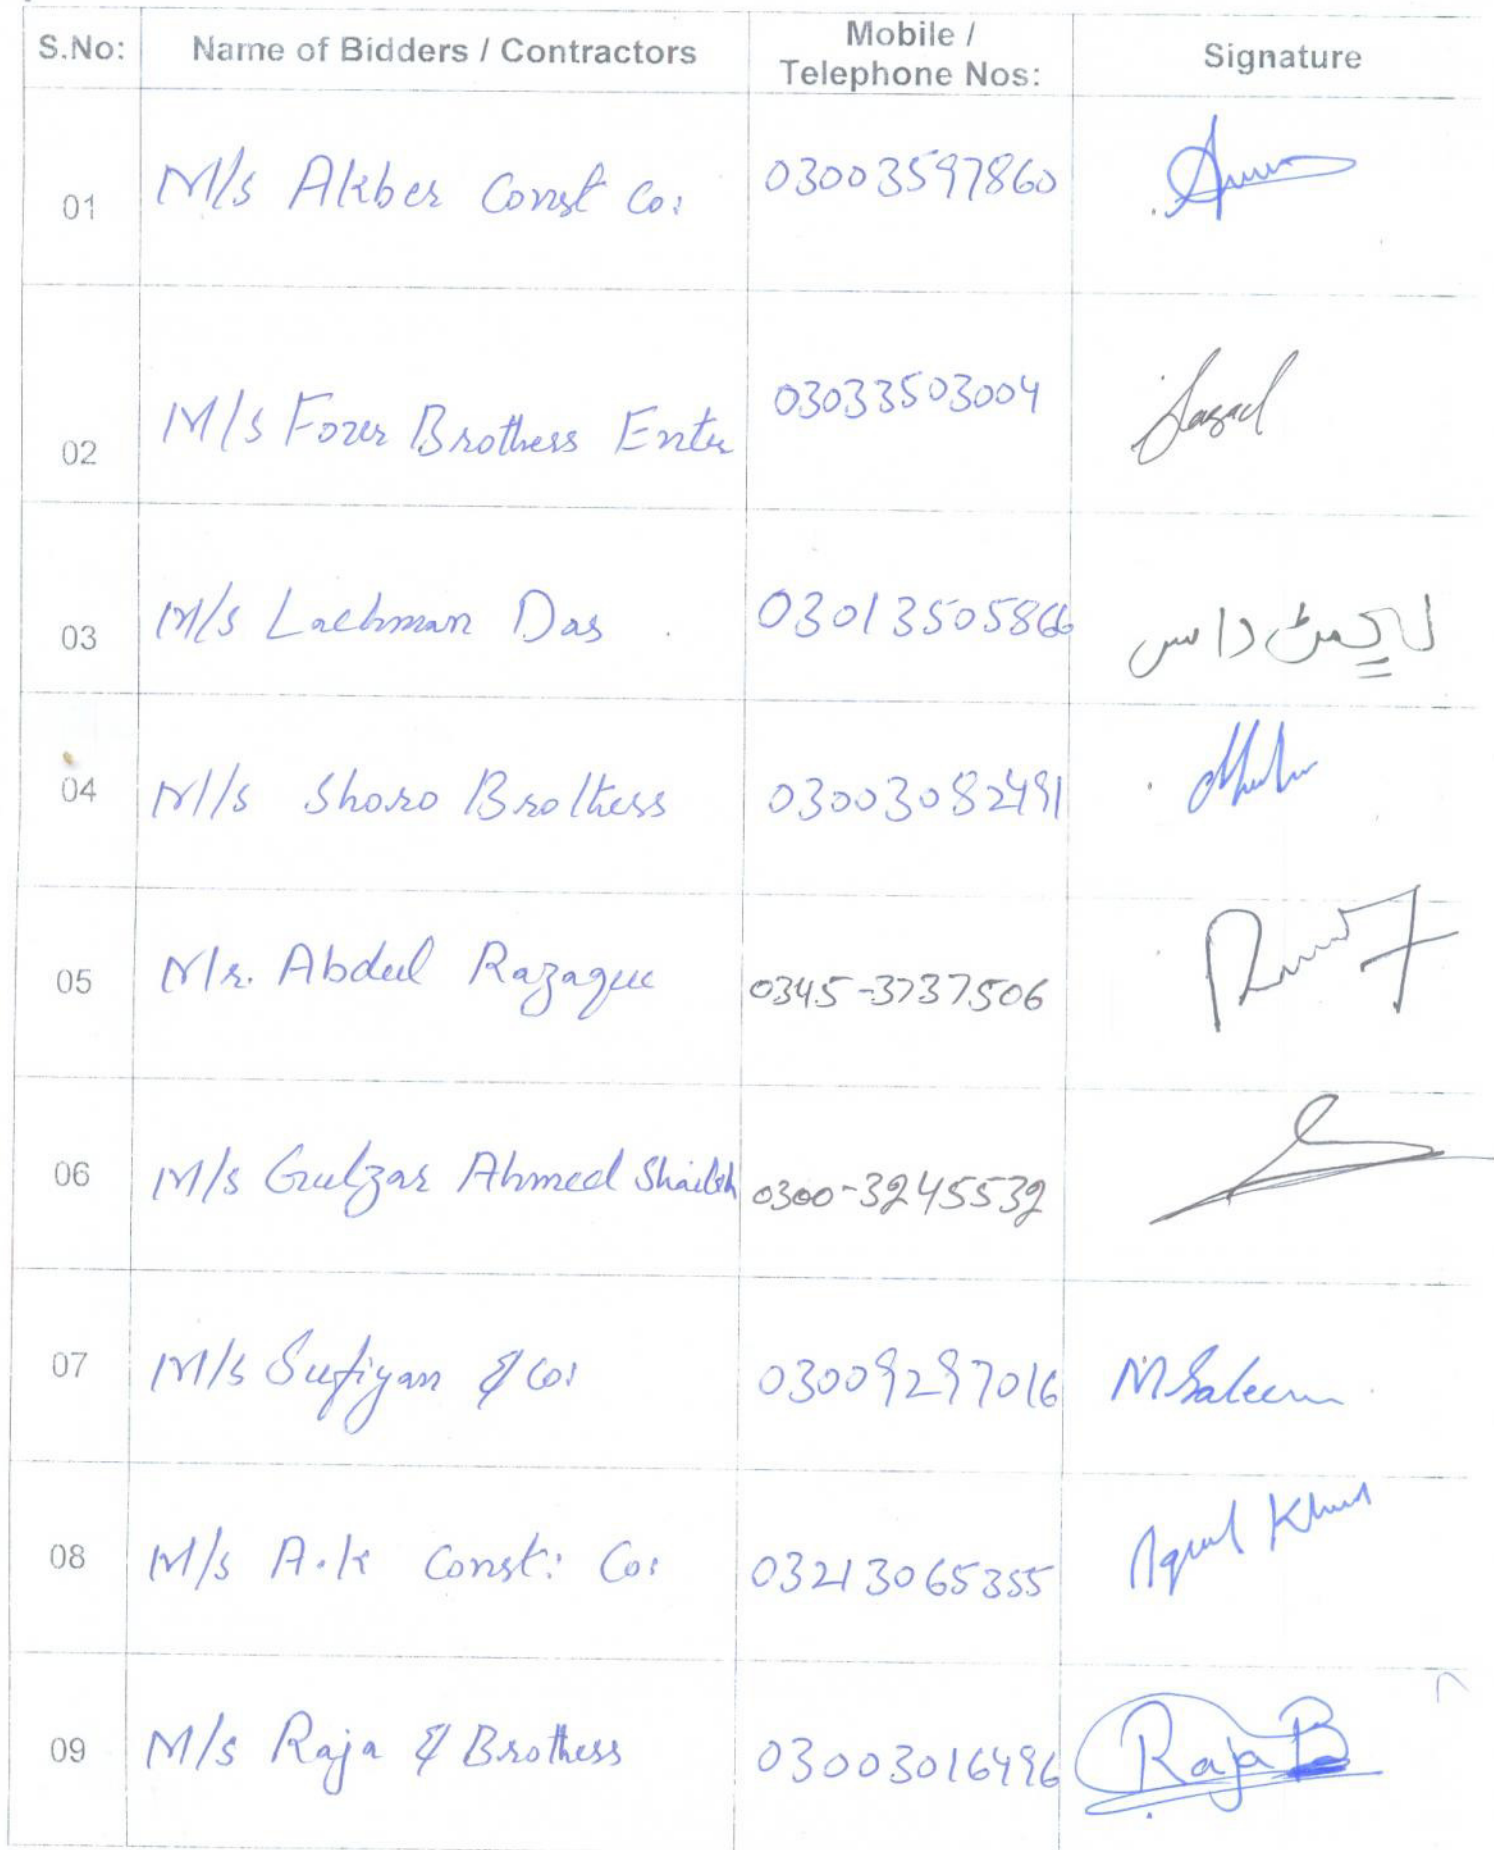 S.No:
Name of Bidders / Contractors
Mobile /
Telephone Nos:
Signature
01
M/s Akber Const Co:
03003597860
02
M/s Forer Brothers Enter
03033503004
03
M/s Lachman Das
03013505866
لڇمڻ داس
04
M/s Shoro Brothers
03003082491
05
Mr. Abdul Razaque
0345-3737506
06
M/s Gulzar Ahmed Shaikh
0300-3245532
07
M/s Sufiyan & Co:
03009297016
M Saleem
08
M/s A.K Const: Co:
03213065355
Aqeel Khan
09
M/s Raja & Brothers
03003016496
Raja B